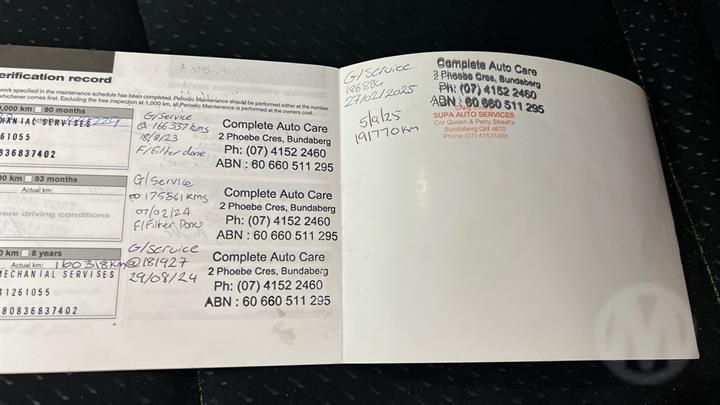 erification record
work specified in the maintenance schedule has been completed. Periodic Maintenance should be performed either at the number
whichever comes first. Excluding the free inspection at 1,000 km, all Periodic Maintenance is performed at the owners cost.
0,000 km 90 months
HANIAL SERVISES
61055
836837402
00 km 93 months
Actual km:
vere driving conditions
0 km 8 years
Actual km: 160318km
MECHANIAL SERVISES
41261055
80836837402
G/Service
@ 166337kms
18/8/23
F/Filter done
Complete Auto Care
2 Phoebe Cres, Bundaberg
Ph: (07) 4152 2460
ABN : 60 660 511 295
G/Service
@ 175861kms
07/02/24
F/Filter Done
Complete Auto Care
2 Phoebe Cres, Bundaberg
Ph: (07) 4152 2460
ABN : 60 660 511 295
G/Service
@181927
29/08/24
Complete Auto Care
2 Phoebe Cres, Bundaberg
Ph: (07) 4152 2460
ABN : 60 660 511 295
G/Service
186884
27/02/2025
Complete Auto Care
2 Phoebe Cres, Bundaberg
Ph: (07) 4152 2460
ABN : 60 660 511 295
5/9/25
191770km
SUPA AUTO SERVICES
Cnr Queen & Perry Street's
Bundaberg Qld 4670
Phone (07) 41531488
M